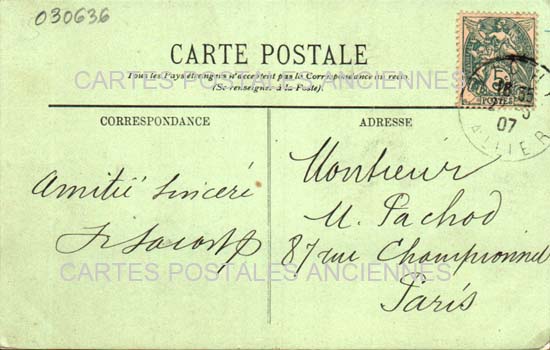 030636
CARTE POSTALE
Tous les Pays étrangers n'acceptent pas la Correspondance au recto
(Se renseigner à la Poste)
CARTES POSTALES ANCIENNES
CORRESPONDANCE
Amitié sincère
ADRESSE
Monsieur
M. Pachod
87 rue Championnet
Paris
CARTES POSTALES ANCIENNES
5c
POSTES
18 35
07
ALLIER